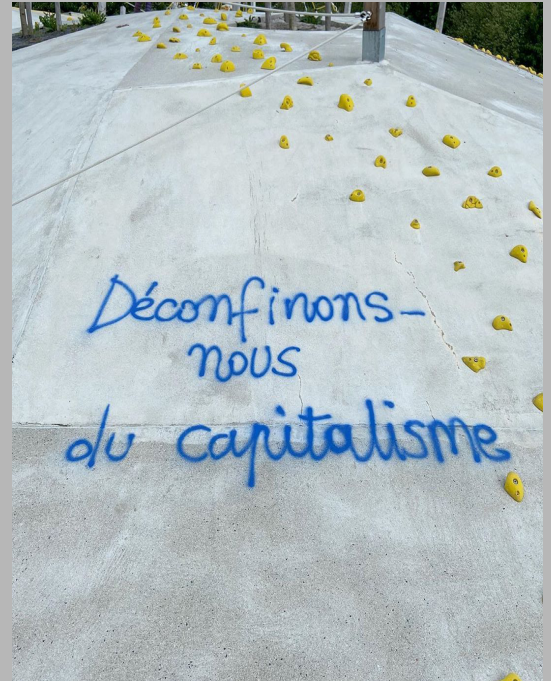 Déconfinons-
nous
du capitalisme